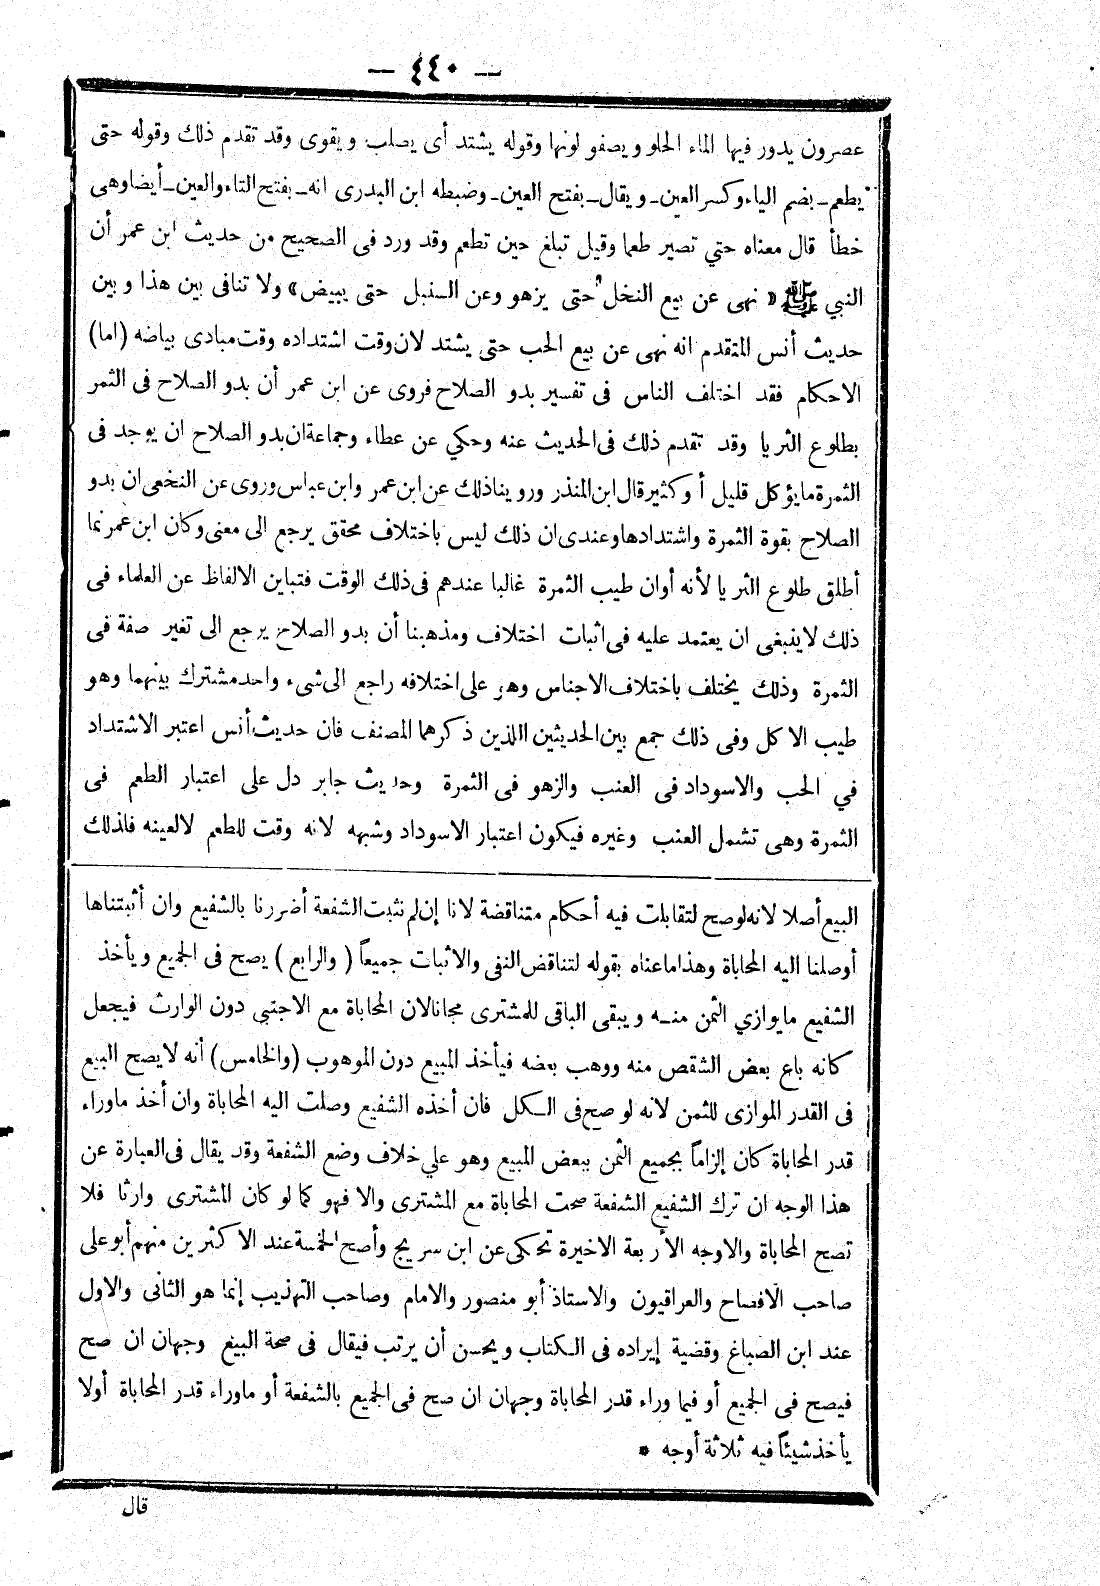 — ٤٤٠ —
عصرون يدور فيها الماء الحلو ويصفو لونها وقوله يشتد أى يصلب ويقوى وقد تقدم ذلك وقوله حتى
يطعم ـ بضم الياء وكسر العين ـ ويقال ـ بفتح العين ـ وضبطه ابن البدرى انه ـ بفتح التاء والعين ـ أيضا وهى
خطأ قال معناه حتي تصير طعما وقيل تبلغ حين تطعم وقد ورد فى الصحيح من حديث ابن عمر أن
النبي ﷺ « نهى عن بيع النخل حتى يزهو وعن السنبل حتى يبيض » ولا تنافى بين هذا وبين
حديث أنس المتقدم انه نهى عن بيع الحب حتى يشتد لان وقت اشتداده وقت مبادى بياضه (اما)
الاحكام فقد اختلف الناس فى تفسير بدو الصلاح فروى عن ابن عمر أن بدو الصلاح فى الثمر
بطلوع الثريا وقد تقدم ذلك فى الحديث عنه وحكي عن عطاء وجماعة ان بدو الصلاح ان يوجد فى
الثمرة ما يؤكل قليل أو كثير قال ابن المنذر وروينا ذلك عن ابن عمر وابن عباس وروى عن النخعى ان بدو
الصلاح بقوة الثمرة واشتدادها وعندى ان ذلك ليس باختلاف محقق يرجع الى معنى وكان ابن عمر نما
أطلق طلوع الثريا لأنه أوان طيب الثمرة غالبا عندهم فى ذلك الوقت فتباين الالفاظ عن العلماء فى
ذلك لا ينبغى ان يعتمد عليه فى اثبات اختلاف ومذهبنا أن بدو الصلاح يرجع الى تغير صفة فى
الثمرة وذلك يختلف باختلاف الاجناس وهو على اختلافه راجع الى شىء واحد مشترك بينهما وهو
طيب الاكل وفى ذلك جمع بين الحديثين اللذين ذكرهما المصنف فان حديث أنس اعتبر الاشتداد
في الحب والاسوداد فى العنب والزهو فى الثمرة وحديث جابر دل على اعتبار الطعم فى
الثمرة وهى تشمل العنب وغيره فيكون اعتبار الاسوداد وشبهه لانه وقت للطعم لا لعينه فلذلك
البيع أصلا لانه لو صح لتقابلت فيه أحكام متناقضة لانا إن لم نثبت الشفعة أضررنا بالشفيع وان أثبتناها
أوصلنا اليه المحاباة وهذا ما عناه بقوله لتناقض النفى والاثبات جميعاً ( والرابع ) يصح فى الجميع ويأخذ
الشفيع ما يوازي الثمن منه ويبقى الباقى للمشترى مجانا لان المحاباة مع الاجنبى دون الوارث فيجعل
كانه باع بعض الشقص منه ووهب بعضه فيأخذ المبيع دون الموهوب (والخامس) أنه لا يصح البيع
فى القدر الموازى للثمن لانه لو صح فى الكل فان أخذه الشفيع وصلت اليه المحاباة وان أخذ ماوراء
قدر المحاباة كان إلزاماً بجميع الثمن ببعض المبيع وهو علي خلاف وضع الشفعة وقد يقال فى العبارة عن
هذا الوجه ان ترك الشفيع الشفعة صحت المحاباة مع المشترى والا فهو كما لو كان المشترى وارثا فلا
تصح المحاباة والاوجه الأربعة الاخيرة تحكى عن ابن سريج وأصح الخمسة عند الاكثرين منهم أبو على
صاحب الافصاح والعراقيون والاستاذ أبو منصور والامام وصاحب التهذيب إنما هو الثانى والاول
عند ابن الصباغ وقضية إيراده فى الكتاب ويحسن أن يرتب فيقال فى صحة البيع وجهان ان صح
فيصح فى الجميع أو فيما وراء قدر المحاباة وجهان ان صح فى الجميع بالشفعة أو ماوراء قدر المحاباة أولا
يأخذ شيئاً فيه ثلاثة أوجه *
قال